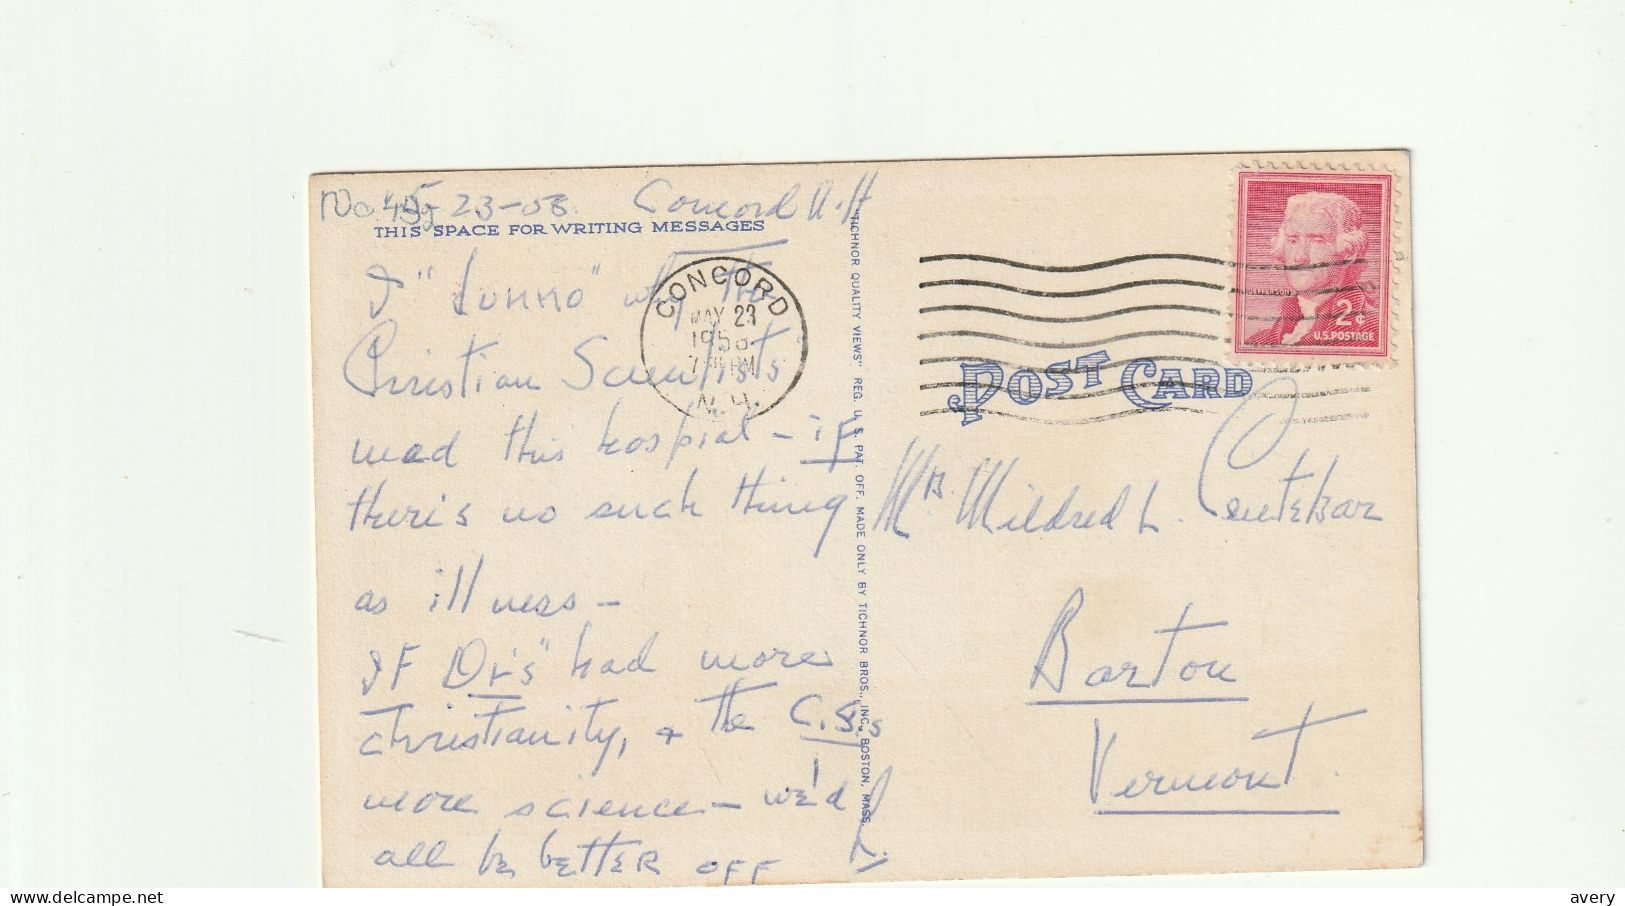 5-23-58. Concord N.H
THIS SPACE FOR WRITING MESSAGES
I "dunno" why the
Christian Scientists
need this hospial - if
there's no such thing
as illness -
If Dr's" had more
christianity, + the C.S.s
more science - we'd
all be better off
CONCORD
MAY 23
1958
PM
N.H.
"TICHNOR QUALITY VIEWS" REG. U. S. PAT. OFF. MADE ONLY BY TICHNOR BROS., INC., BOSTON, MASS.
JEFFERSON
2¢
U.S. POSTAGE
POST CARD
Mrs. Mildred L.
Barton
Vermont.
avery